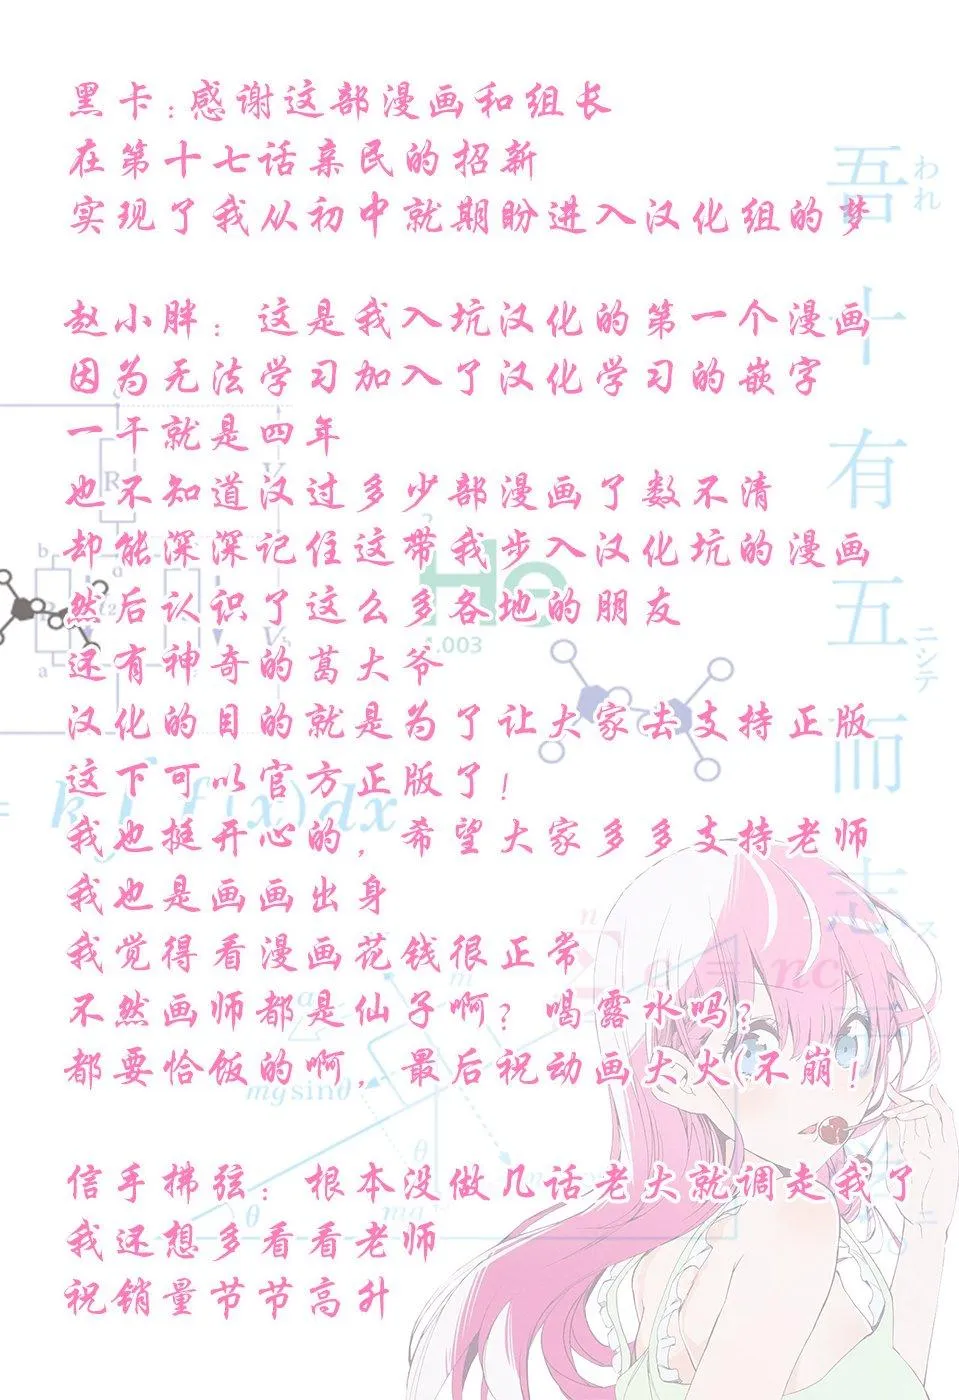 黑卡：感谢这部漫画和组长
在第十七话亲民的招新
实现了我从初中就期盼进入汉化组的梦
赵小胖：这是我入坑汉化的第一个漫画
因为无法学习加入了汉化学习的嵌字
一干就是四年
也不知道汉过多少部漫画了数不清
却能深深记住这带我步入汉化坑的漫画
然后认识了这么多各地的朋友
还有神奇的葛大爷
汉化的目的就是为了让大家去支持正版
这下可以官方正版了！
我也挺开心的，希望大家多多支持老师
我也是画画出身
我觉得看漫画花钱很正常
不然画师都是仙子啊？喝露水吗？
都要恰饭的啊，最后祝动画大火(不崩！
信手拂弦：根本没做几话老大就调走我了
我还想多看看老师
祝销量节节高升
吾十有五而志
われ
ニシテ
ス
ニ
R
V
b
a
He
4.003
= k∫f(x)dx
n
m
a
= nc
mg sinθ
θ
θ